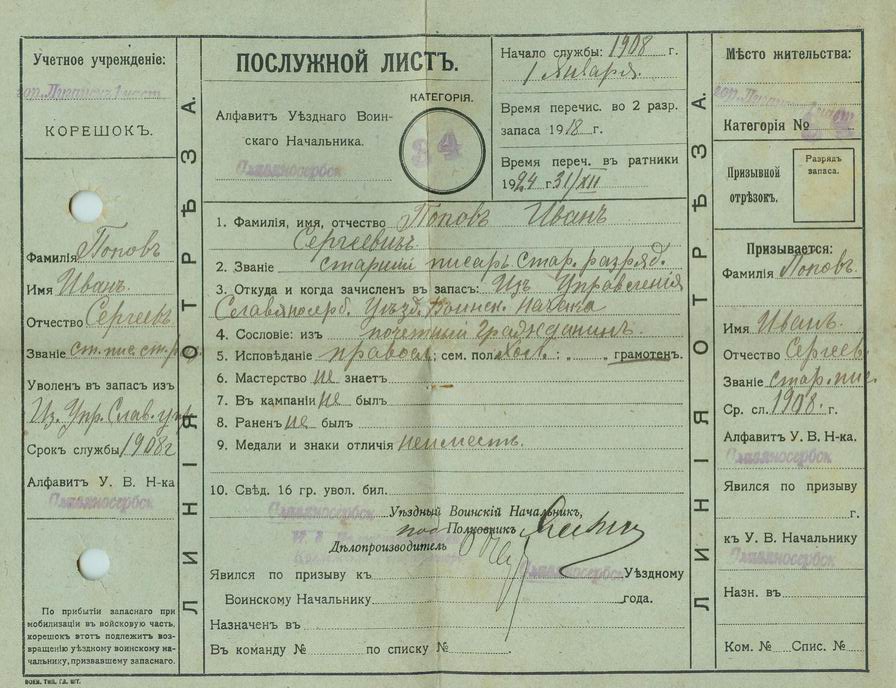 Учетное учрежденіе:
гор. Луганскъ 1 част.
КОРЕШОКЪ.
Фамилія Поповъ
Имя Иванъ.
Отчество Сергеевъ
Званіе ст. пис. ст. раз.
Уволенъ въ запасъ изъ
Из. Упр. Слав. у.
Срокъ службы 1908 г
Алфавитъ У. В. Н-ка
Славяносербск
По прибытіи запаснаго при
мобилизаціи въ войсковую часть,
корешокъ этотъ подлежитъ воз-
вращенію уѣздному воинскому на-
чальнику, призвавшему запаснаго.
ВОЕН. ТИП. ГЛ. ШТ.
ЛИНІЯ ОТРѢЗА.
ПОСЛУЖНОЙ ЛИСТЪ.
Алфавитъ Уѣзднаго Воин-
скаго Начальника.
Славяносербск
КАТЕГОРІЯ.
34
Начало службы: 1908 г.
1 Января.
Время перечис. во 2 разр.
запаса 1918 г.
Время переч. въ ратники
1924 г 31/XII
1. Фамилія, имя, отчество Поповъ Иванъ
Сергеевичъ
2. Званіе старшій писарь стар. разряд.
3. Откуда и когда зачисленъ въ запасъ: Изъ Управленія
Славяносерб. Уѣзд. Воинск. Начка
4. Сословіе: изъ почетный Гражданинъ.
5. Исповѣданіе правосл; сем. пол. Хол.: „ „ грамотенъ.
6. Мастерство не знаетъ
7. Въ кампаніи не былъ
8. Раненъ не былъ
9. Медали и знаки отличія неиместъ.
10. Свѣд. 16 гр. увол. бил.
Уѣздный Воинскій Начальникъ,
Славяносербск
под Полковникъ
Дѣлопроизводитель
Явился по призыву къ Славяносербск Уѣздному
Воинскому Начальнику года.
Назначенъ въ
Въ команду № по списку №
ЛИНІЯ ОТРѢЗА.
Мѣсто жительства:
гор. Луганск 1 част
Категорія №
Призывной
отрѣзокъ.
Разрядъ
запаса.
Призывается:
Фамилія Поповъ.
Имя Иванъ.
Отчество Сергеев
Званіе стар. пис.
Ср. сл. 1908. г.
Алфавитъ У. В. Н-ка.
Славяносербск
Явился по призыву
г.
къ У. В. Начальнику
Славяносербск
Назн. въ
Ком. № Спис. №